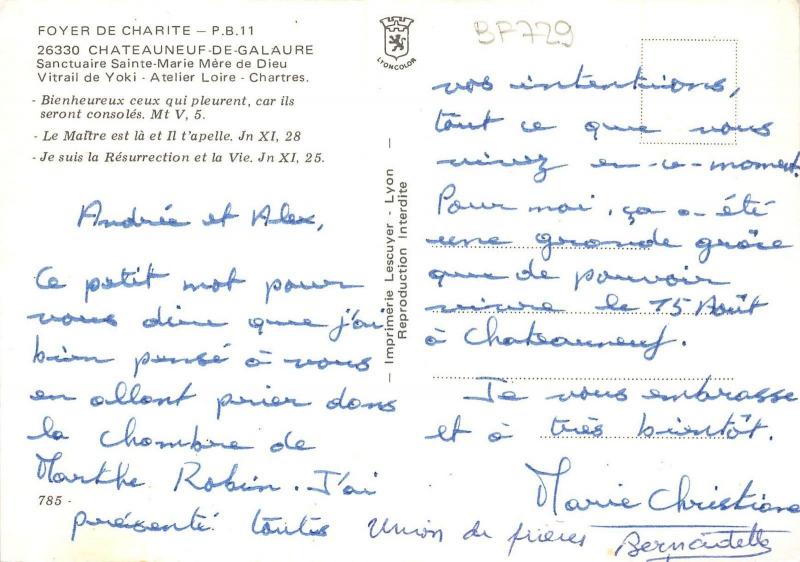 FOYER DE CHARITE — P.B.11
26330 CHATEAUNEUF-DE-GALAURE
Sanctuaire Sainte-Marie Mère de Dieu
Vitrail de Yoki - Atelier Loire - Chartres.
- Bienheureux ceux qui pleurent, car ils
seront consolés. Mt V, 5.
- Le Maître est là et Il t'apelle. Jn XI, 28
- Je suis la Résurrection et la Vie. Jn XI, 25.
Andrée et Alex,
Ce petit mot pour
vous dire que j'ai
bien pensé à vous
en allant prier dans
la chambre de
Marthe Robin. J'ai
785 -
présenté toutes
LYONCOLOR
— Imprimerie Lescuyer - Lyon —
Reproduction Interdite
BP729
vos intentions,
tout ce que vous
vivez en ce moment.
Pour moi, ça a été
une grande grâce
que de pouvoir
vivre le 15 Août
à Chateauneuf.
Je vous embrasse
et à très bientôt.
Marie Christiane
Union de prières Bernadette